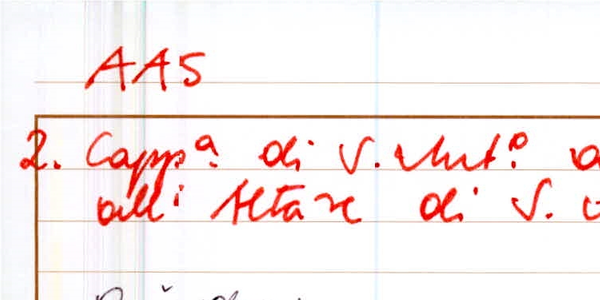 AA5
2. Capp.ª di S. Ant.º
all' Altare di S.